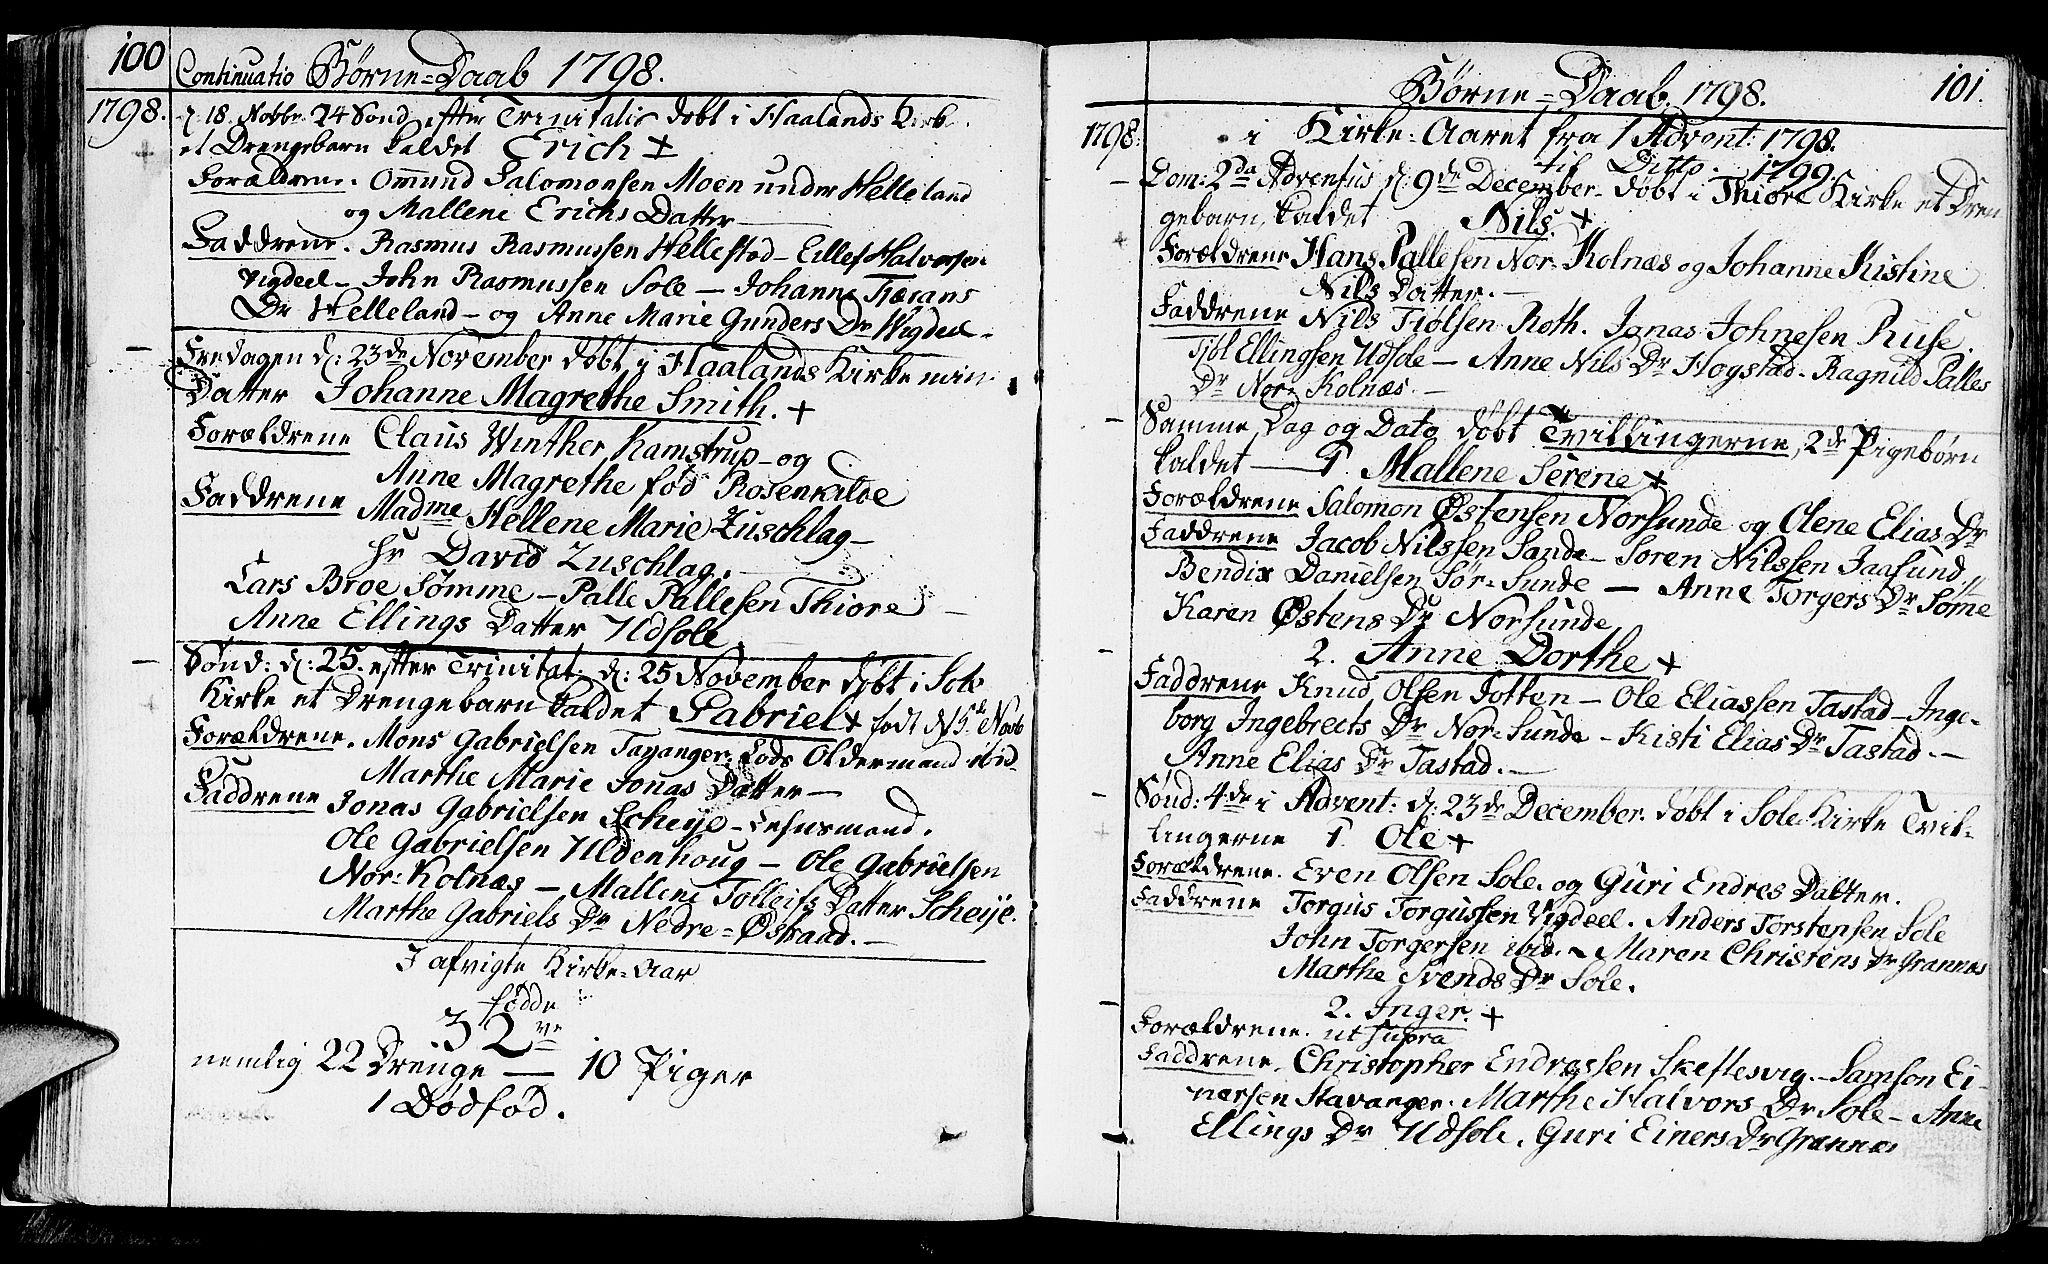 100
Continuatio Børne=Daab 1798.
1798.
d. 18. Nobbr. 24 Sønd. efter Trinitatis døbt i Haalands Kirk
et Drengebarn kaldet Erich +
Forældrene. Ommund Salomonsen Moen under Helleland
og Mallene Erichs Datter
Faddrene. Rasmus Rasmussen Hellestød - Eillef Halvorsen
Vigdeel - John Rasmussen Sole - Johanne Tjærans
Dr Helleland - og Anne Marie Gunders Dr Wigdeel -
Fredagen d: 23de November døbt i Haalands Kirke min
Datter Johanne Magrethe Smith. +
Forældrene Claus Winther Kamstrup - og
Anne Magrethe fød Rosenkilde
Faddrene Madme Hellene Marie Zuschlag -
Hr David Zuschlag.
Lars Broe Sømme - Palle Pallesen Thiore -
Anne Ellings Datter Udsole
Sønd: d: 25. efter Trinitat. d: 25 November døbt i Sole
Kirke et Drengebarn kaldet Gabriel + født d. 15de Novb
Forældrene. Mons Gabrielsen Tananger. Lods Oldermand ibid -
Marthe Marie Jonas Datter -
Faddrene Jonas Gabrielsen Scheije - Lehnsmand.
Ole Gabrielsen Uldenhoug - Ole Gabrielsen
Nor=Kolnæs - Mallene Tolleifs Datter Scheije.
Marthe Gabriels Dr Nedre=Østraad. -
I afvigte Kirke=Aar
fødde
32ve
nemlig 22 Drenge - 10 Piger
1 Dødfød.
Børne=Daab 1798.
101.
1798.
i Kirke=Aaret fra 1 Advent: 1798.
til Ditto. 1799.
Dom: 2da Adventus d: 9de December døbt i Thiore Kirke et Dren
gebarn, kaldet Nils. +
Forældrene Hans Pallesen Nor=Kolnæs og Johanne Kistine
Nils Datter. -
Faddrene Nils Tiølsen Roth. Jonas Johnesen Ruse.
Tjøl Ellingsen Udsole - Anne Nils Dr Hogstad - Ragnild Palles
Dr Nor=Kolnæs. -
Samme Dag og Dato døbt Tvillingerne, 2de Pigebørn
kaldet - 1. Mallene Serene +
Forældrene Salomon Østensen Norsunde og Olene Elias Dr
Faddrene Jacob Nilssen Sande - Soren Nilssen Jaasund.
Bendix Danielsen Sør=Sunde - Anne Torgers Dr Sømme
Karen Østens Dr Norsunde
2. Anne Dorthe +
Faddrene Knud Olsen Jotten - Ole Eliassen Tastad - Inge=
borg Ingebrects Dr Nor=Sunde - Kisti Elias Dr Tastad. -
Anne Elias Dr Tastad. -
Sønd: 4de i Advent: d: 23de December døbt i Sole Kirke Tvil=
lingerne 1. Ole +
Forældrene. Even Olsen Sole. og Guri Endres Datter.
Faddrene Torgus Torgussen Vigdeel. Anders Torstensen Sole
John Torgersen ibid. - Maren Christens Dr Grannes
Marthe Svends Dr Sole.
2. Inger. +
Forældrene. ut supra
Faddrene. Christopher Endressen Skeflesvig. - Samson Ei=
nersen Stavanger. Marthe Halvors Dr Sole - Anne
Ellings Dr Udsole. Guri Einers Dr Grannes